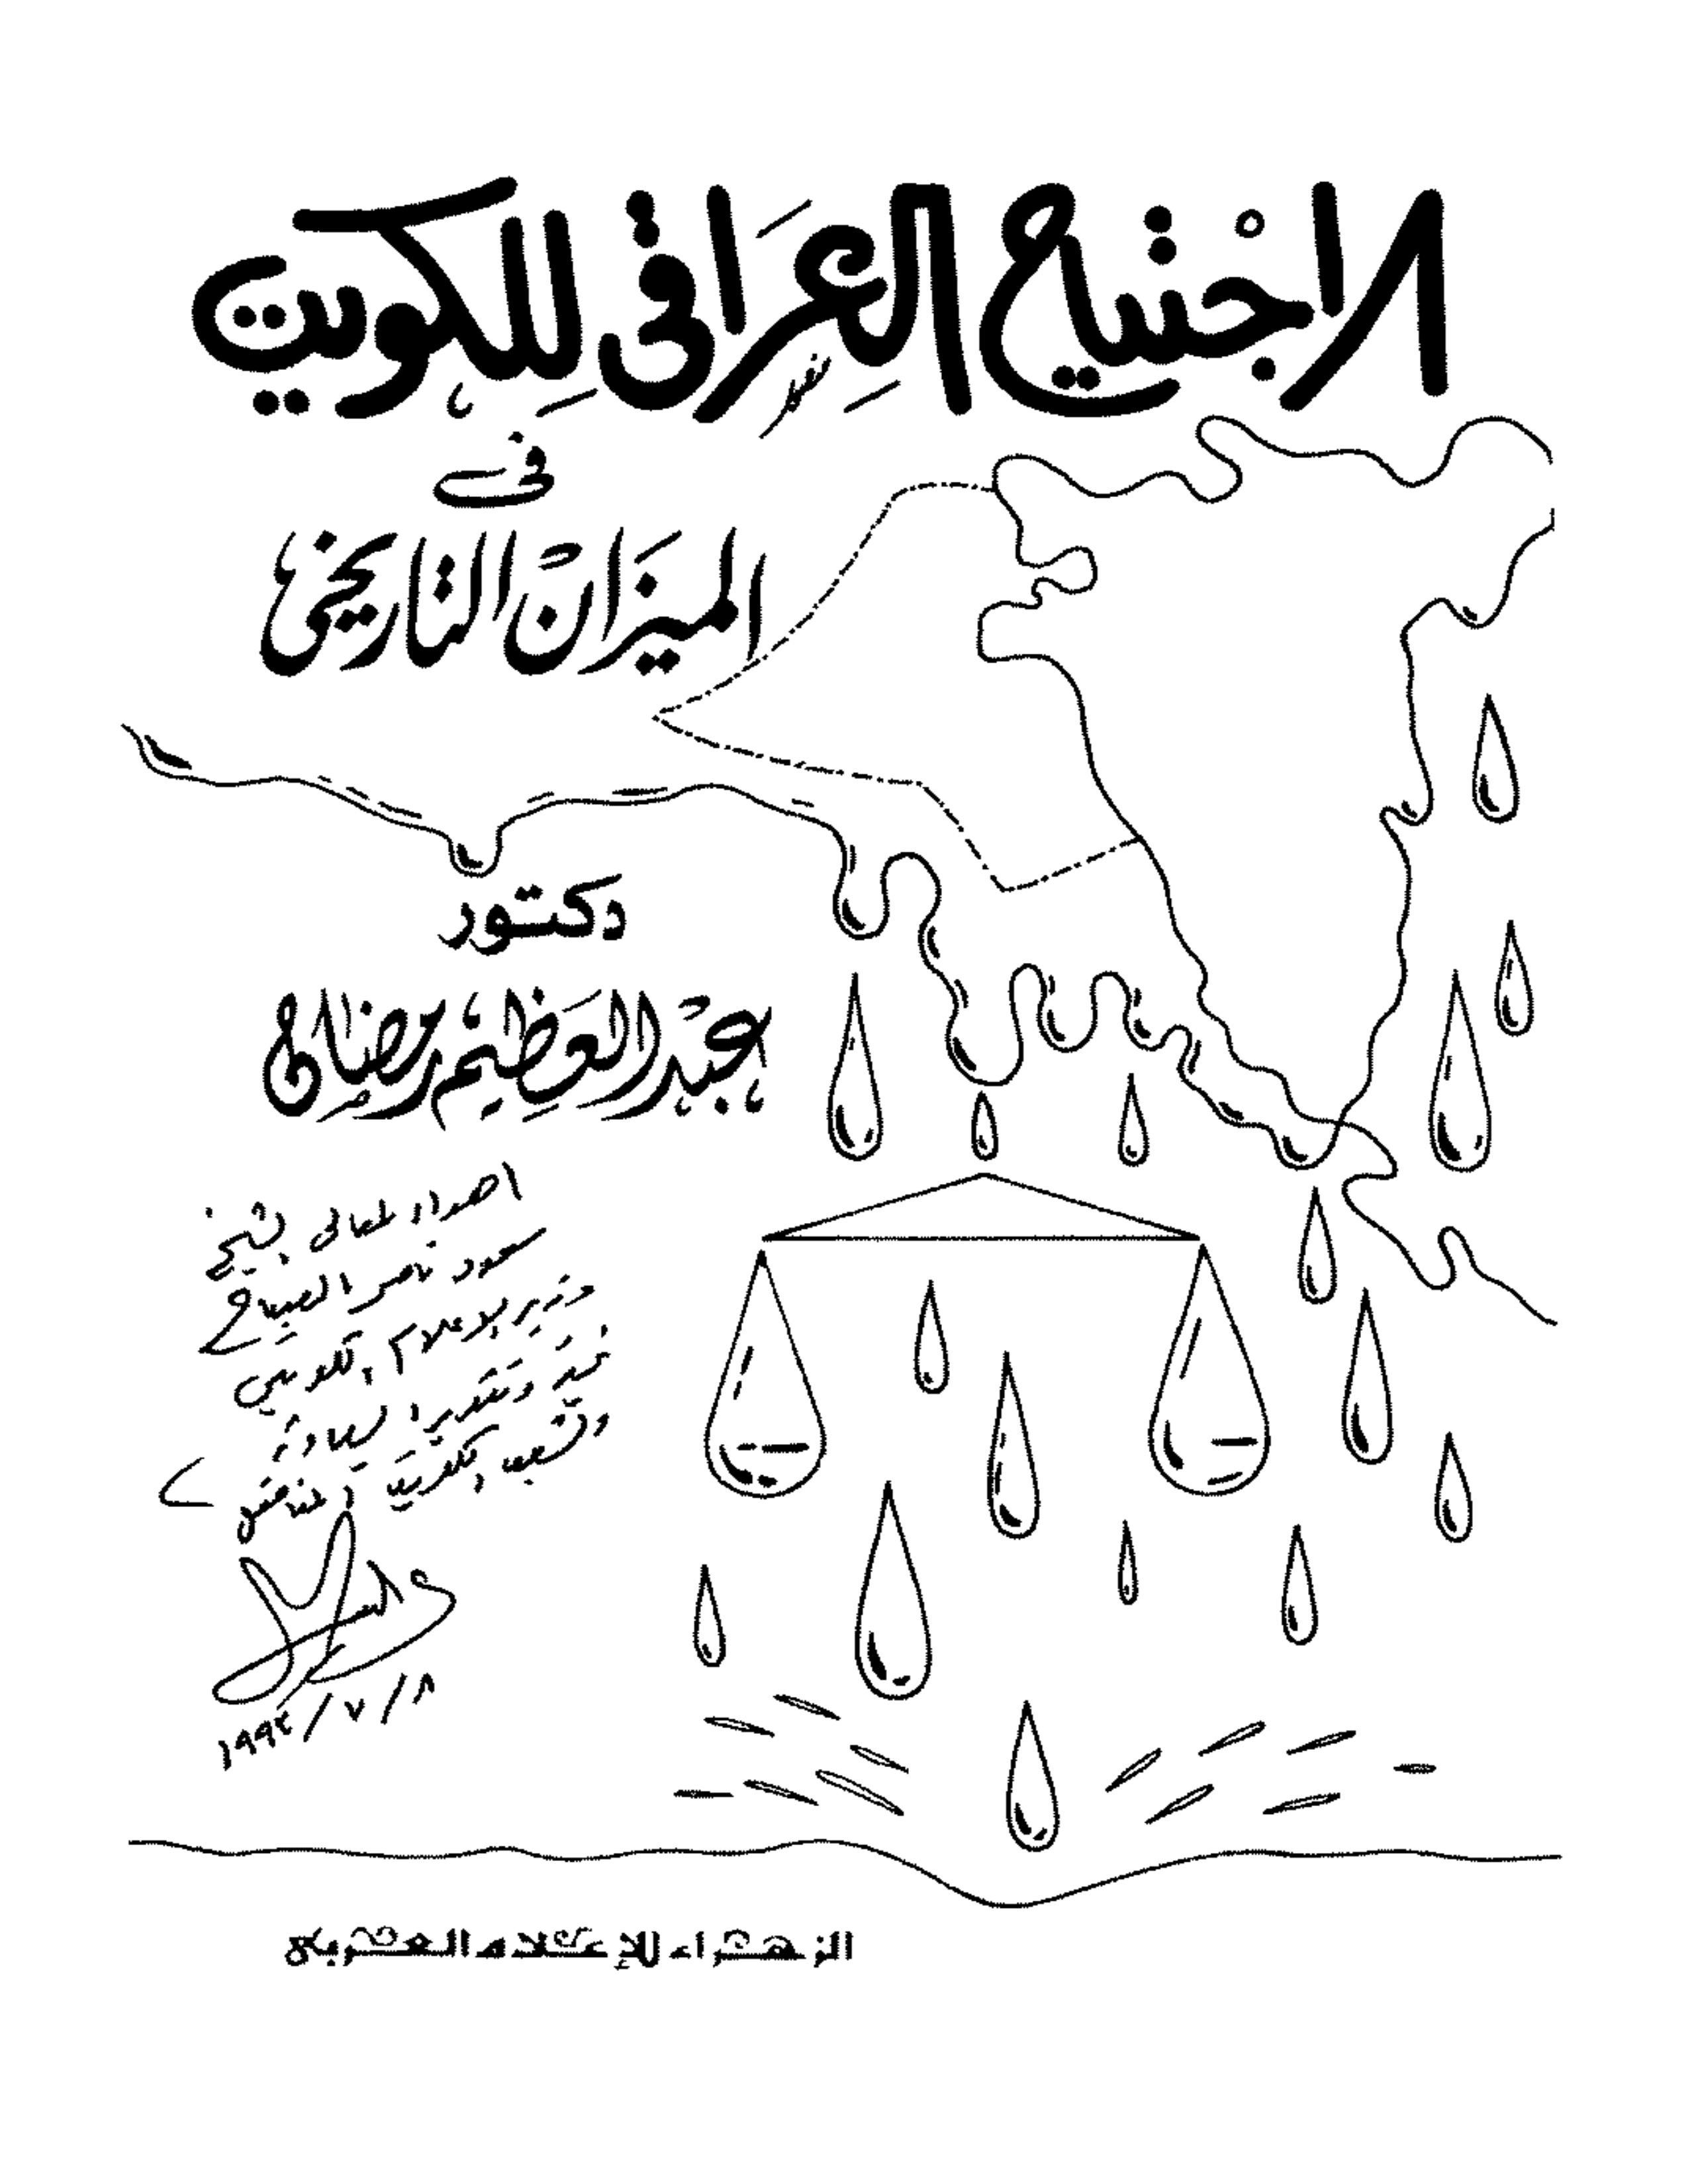 الاجتياح العراقى للكويت
فى
الميزان التاريخى
دكتور
عبد العظيم رمضان
اهداء لمعالى الشيخ
سعود ناصر الصباح
وزير الاعلام الكويتى
تحية وتقديرا لسيادته
وللشعب الكويتى المناضل
٨ / ٧ / ١٩٩٤
الزهراء للإعلام العربى